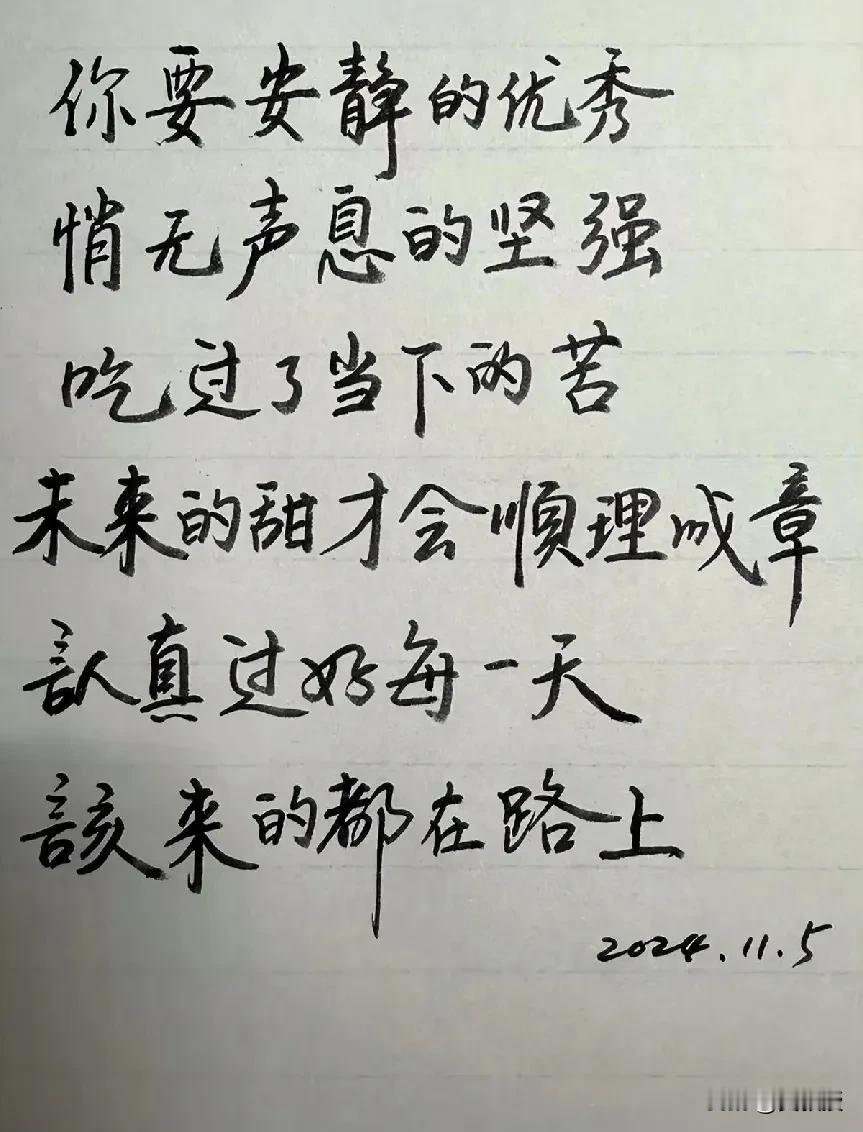 你要安静的优秀
悄无声息的坚强
吃过了当下的苦
未来的甜才会顺理成章
認真过好每一天
該来的都在路上
2024.11.5